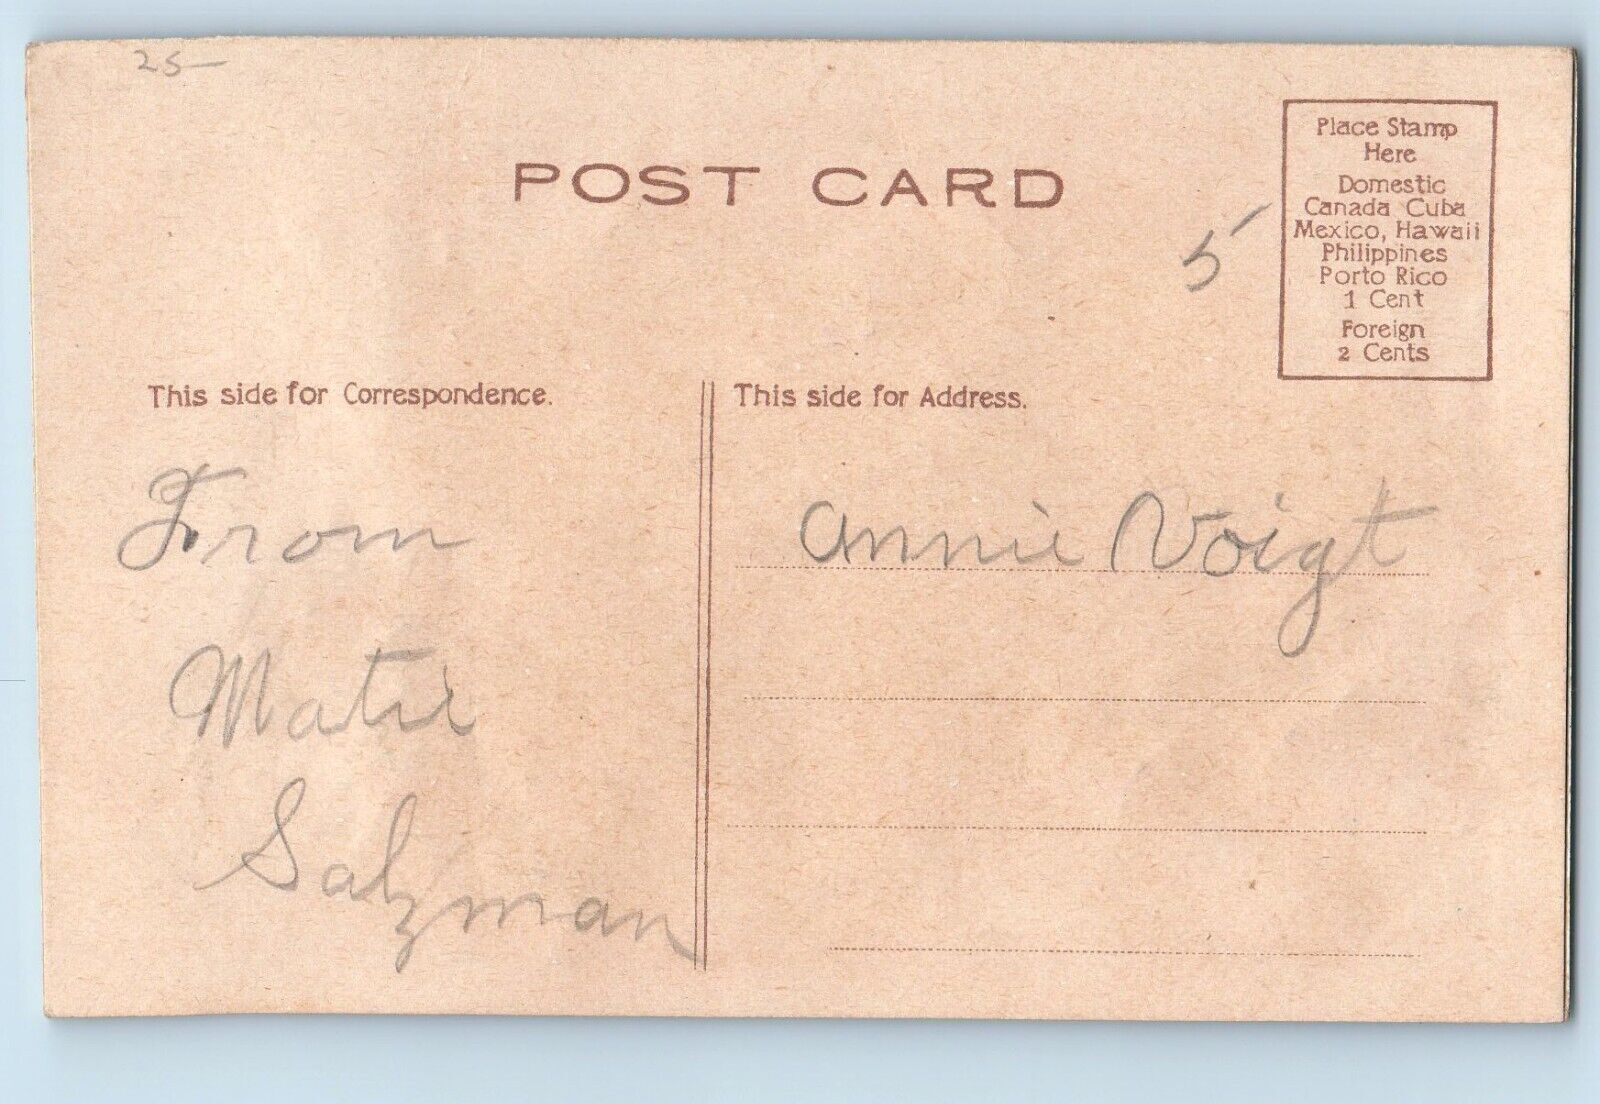 25-
POST CARD
Place Stamp
Here
Domestic
Canada, Cuba
Mexico, Hawaii
Philippines
Porto Rico
1 Cent
Foreign
2 Cents
5
This side for Correspondence.
This side for Address.
From
Matie
Salzman
Annie Voigt